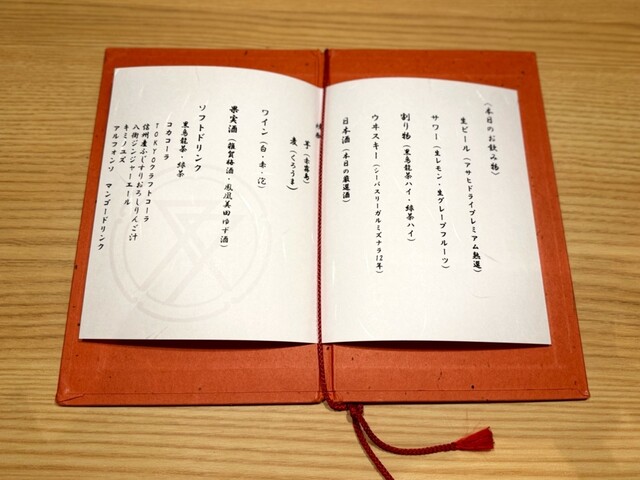 (本日のお飲み物)
生ビール(アサヒドライプレミアム熟選)
サワー(生レモン・生グレープフルーツ)
割り物(黒烏龍茶ハイ・緑茶ハイ)
ウヰスキー(シーバスリーガルミズナラ12年)
日本酒(本日の厳選酒)
芋(赤霧島)
麦(くろうま)
ワイン(白・赤・泡)
果実酒(雑賀梅酒・鳳凰美田ゆず酒)
ソフトドリンク
黒烏龍茶・緑茶
コカコーラ
TOKYOクラフトコーラ
信州産ふじすりおろしりんご汁
八街ジンジャーエール
キミノユズ
アルフォンソ マンゴードリンク